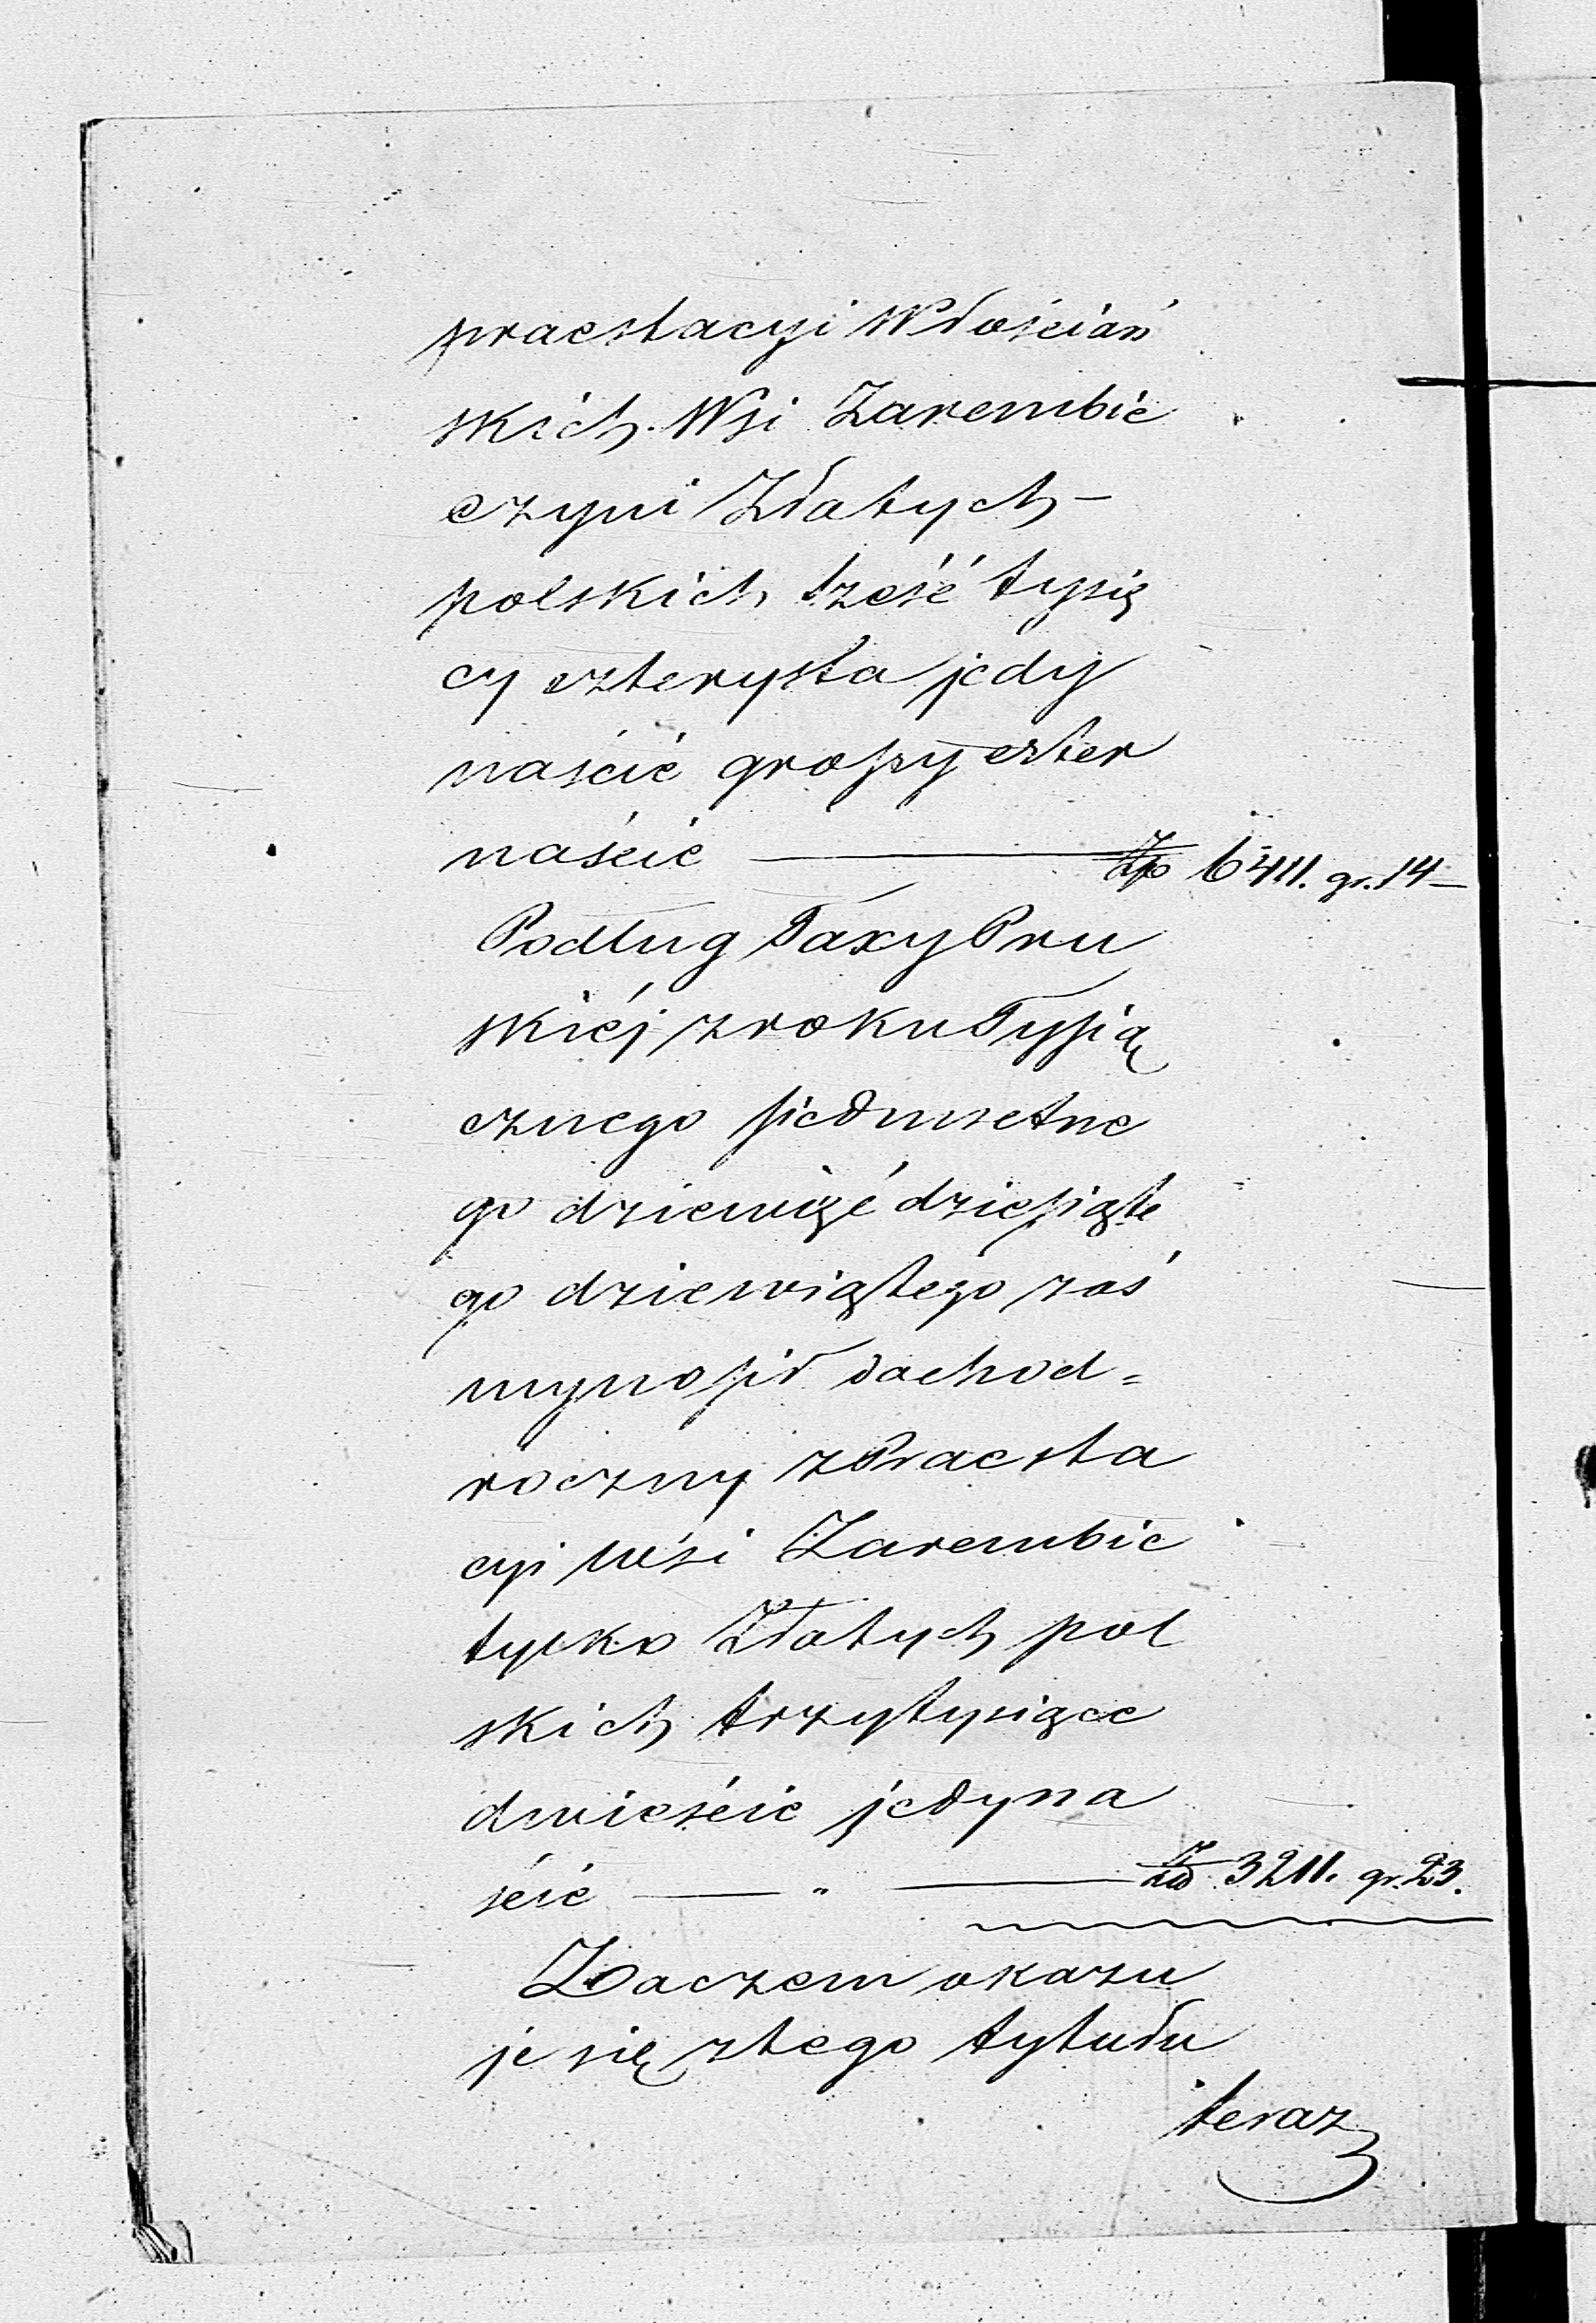 praestacyi Włościań
skich Wsi Zarembic
czyni Złotych –
polskich sześć tysię
cy czterysta jedy
naście groszy czter
naście ——— Złp 6411. gr. 14 –
Podług Taxy Pru
skiéj z roku Tysią
cznego siedmsetne
go dziewięć dziesiąte
go dziewiątego zaś
wynosił dochod =
roczny z Praesta
cyi Wsi Zarembic
tylko Złotych pol
skich trzy tysiące
dwieście jedyna
ście —— " —— Złp 3211. gr. 23.
Zaczem okazu
je się z tego tytułu
teraz